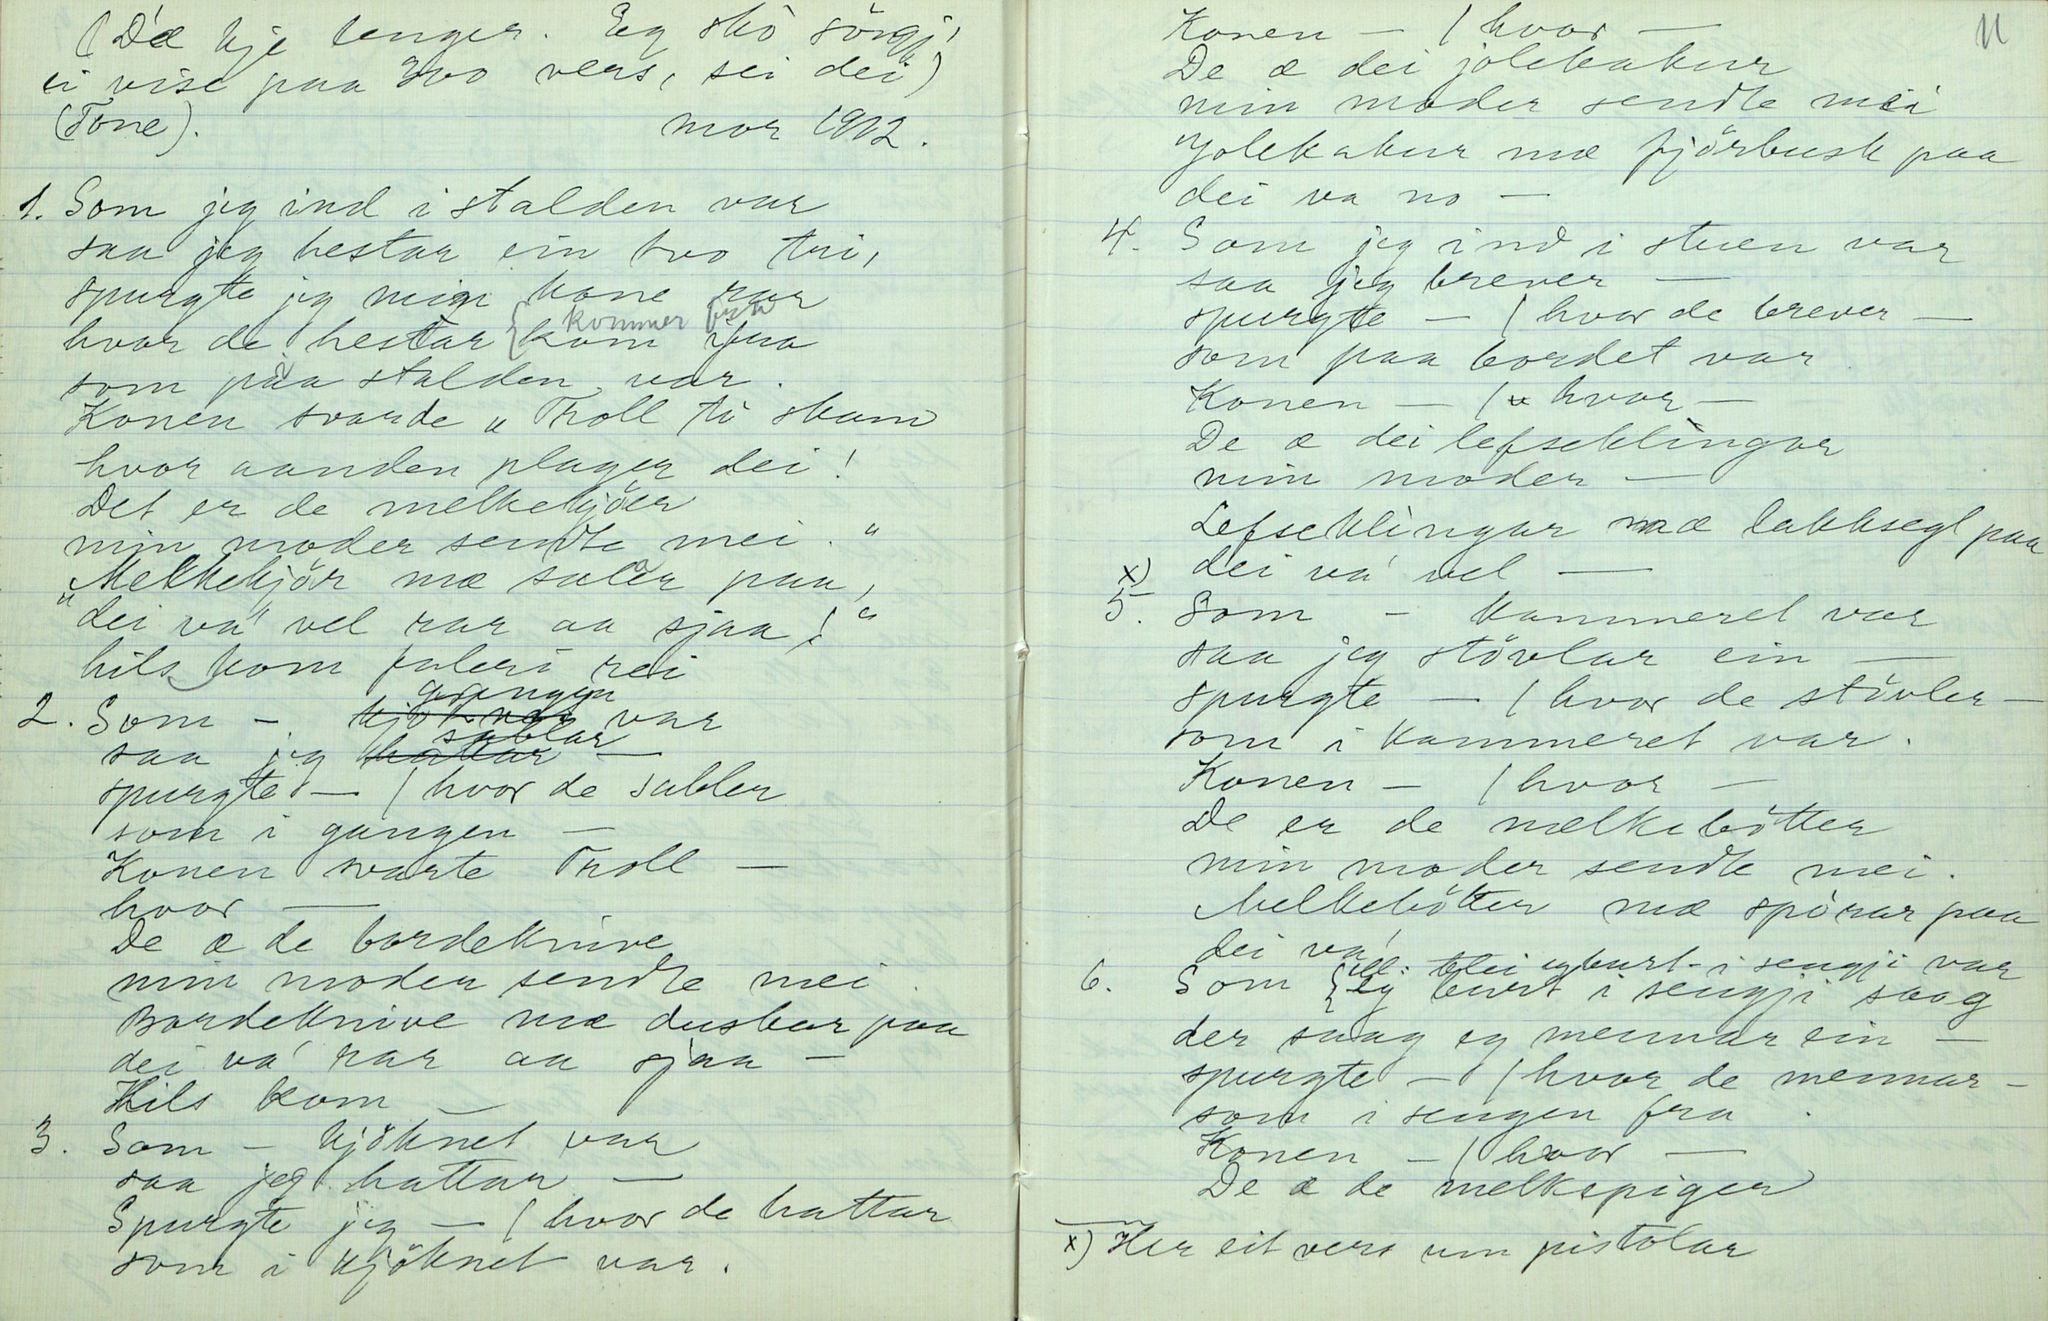 (D'æ kje lenger. Eg sko söngj'
ei vise paa 300 vers, sei dei)
(Tone). mor 1912.
1. Som jeg ind i stalden var
saa jeg hestar ein tvo tri,
spurgte jeg min kone rar
kommer fra
hvor de hestar { kom ifra
som paa stalden var.
Konen svarde „ Troll til skam
hvor aanden plager dei!
Det er de melkekjöer
min moder sendte mei."
Melkekjör mæ salar paa,
"dei va' vel rar aa sjaa!"
hils kom faleri rei
gangen
2. Som - kjöknet var
sablar
saa jeg hattar —
spurgte — / hvor de sabler
som i gangen —
Konen svarte Troll —
hvor —
De æ de bordeknive
min moder sendte mei.
Bordeknive mæ duskar paa
dei va' rar aa sjaa —
Hils kom —
3. Som — kjöknet var
saa jeg hattar —
Spurgte jeg — / hvor de hattar
som i kjöknet var.
11
Konen — / hvor —
De æ dei jolekakur
min moder sendte mei
Jolekakur mæ fjörbusk paa
dei va no —
4. Som jeg ind i stuen var
saa jeg brever —
spurgte — / hvor de brever —
som paa bordet var
Konen — / hvor —
De æ dei lefseklingar
min moder —
Lefseklingar mæ lakksegl paa
dei va' vel —
x)
5. Som - kammeret var
saa jeg stövlar ein —
spurgte — / hvor de stövler —
som i kammeret var.
Konen — / hvor —
De er de melkebötter
min moder sendte mei.
Melkebötter mæ sporar paa
dei va'
ell. blei eg burt i sengji var
6. Som { eg burt i sengji saag
der saag eg mennar ein —
spurgte — / hvor de mennar —
som i sengen fra.
Konen — / hvor —
De æ de melkepiger
x) Her eit vers um pistolar